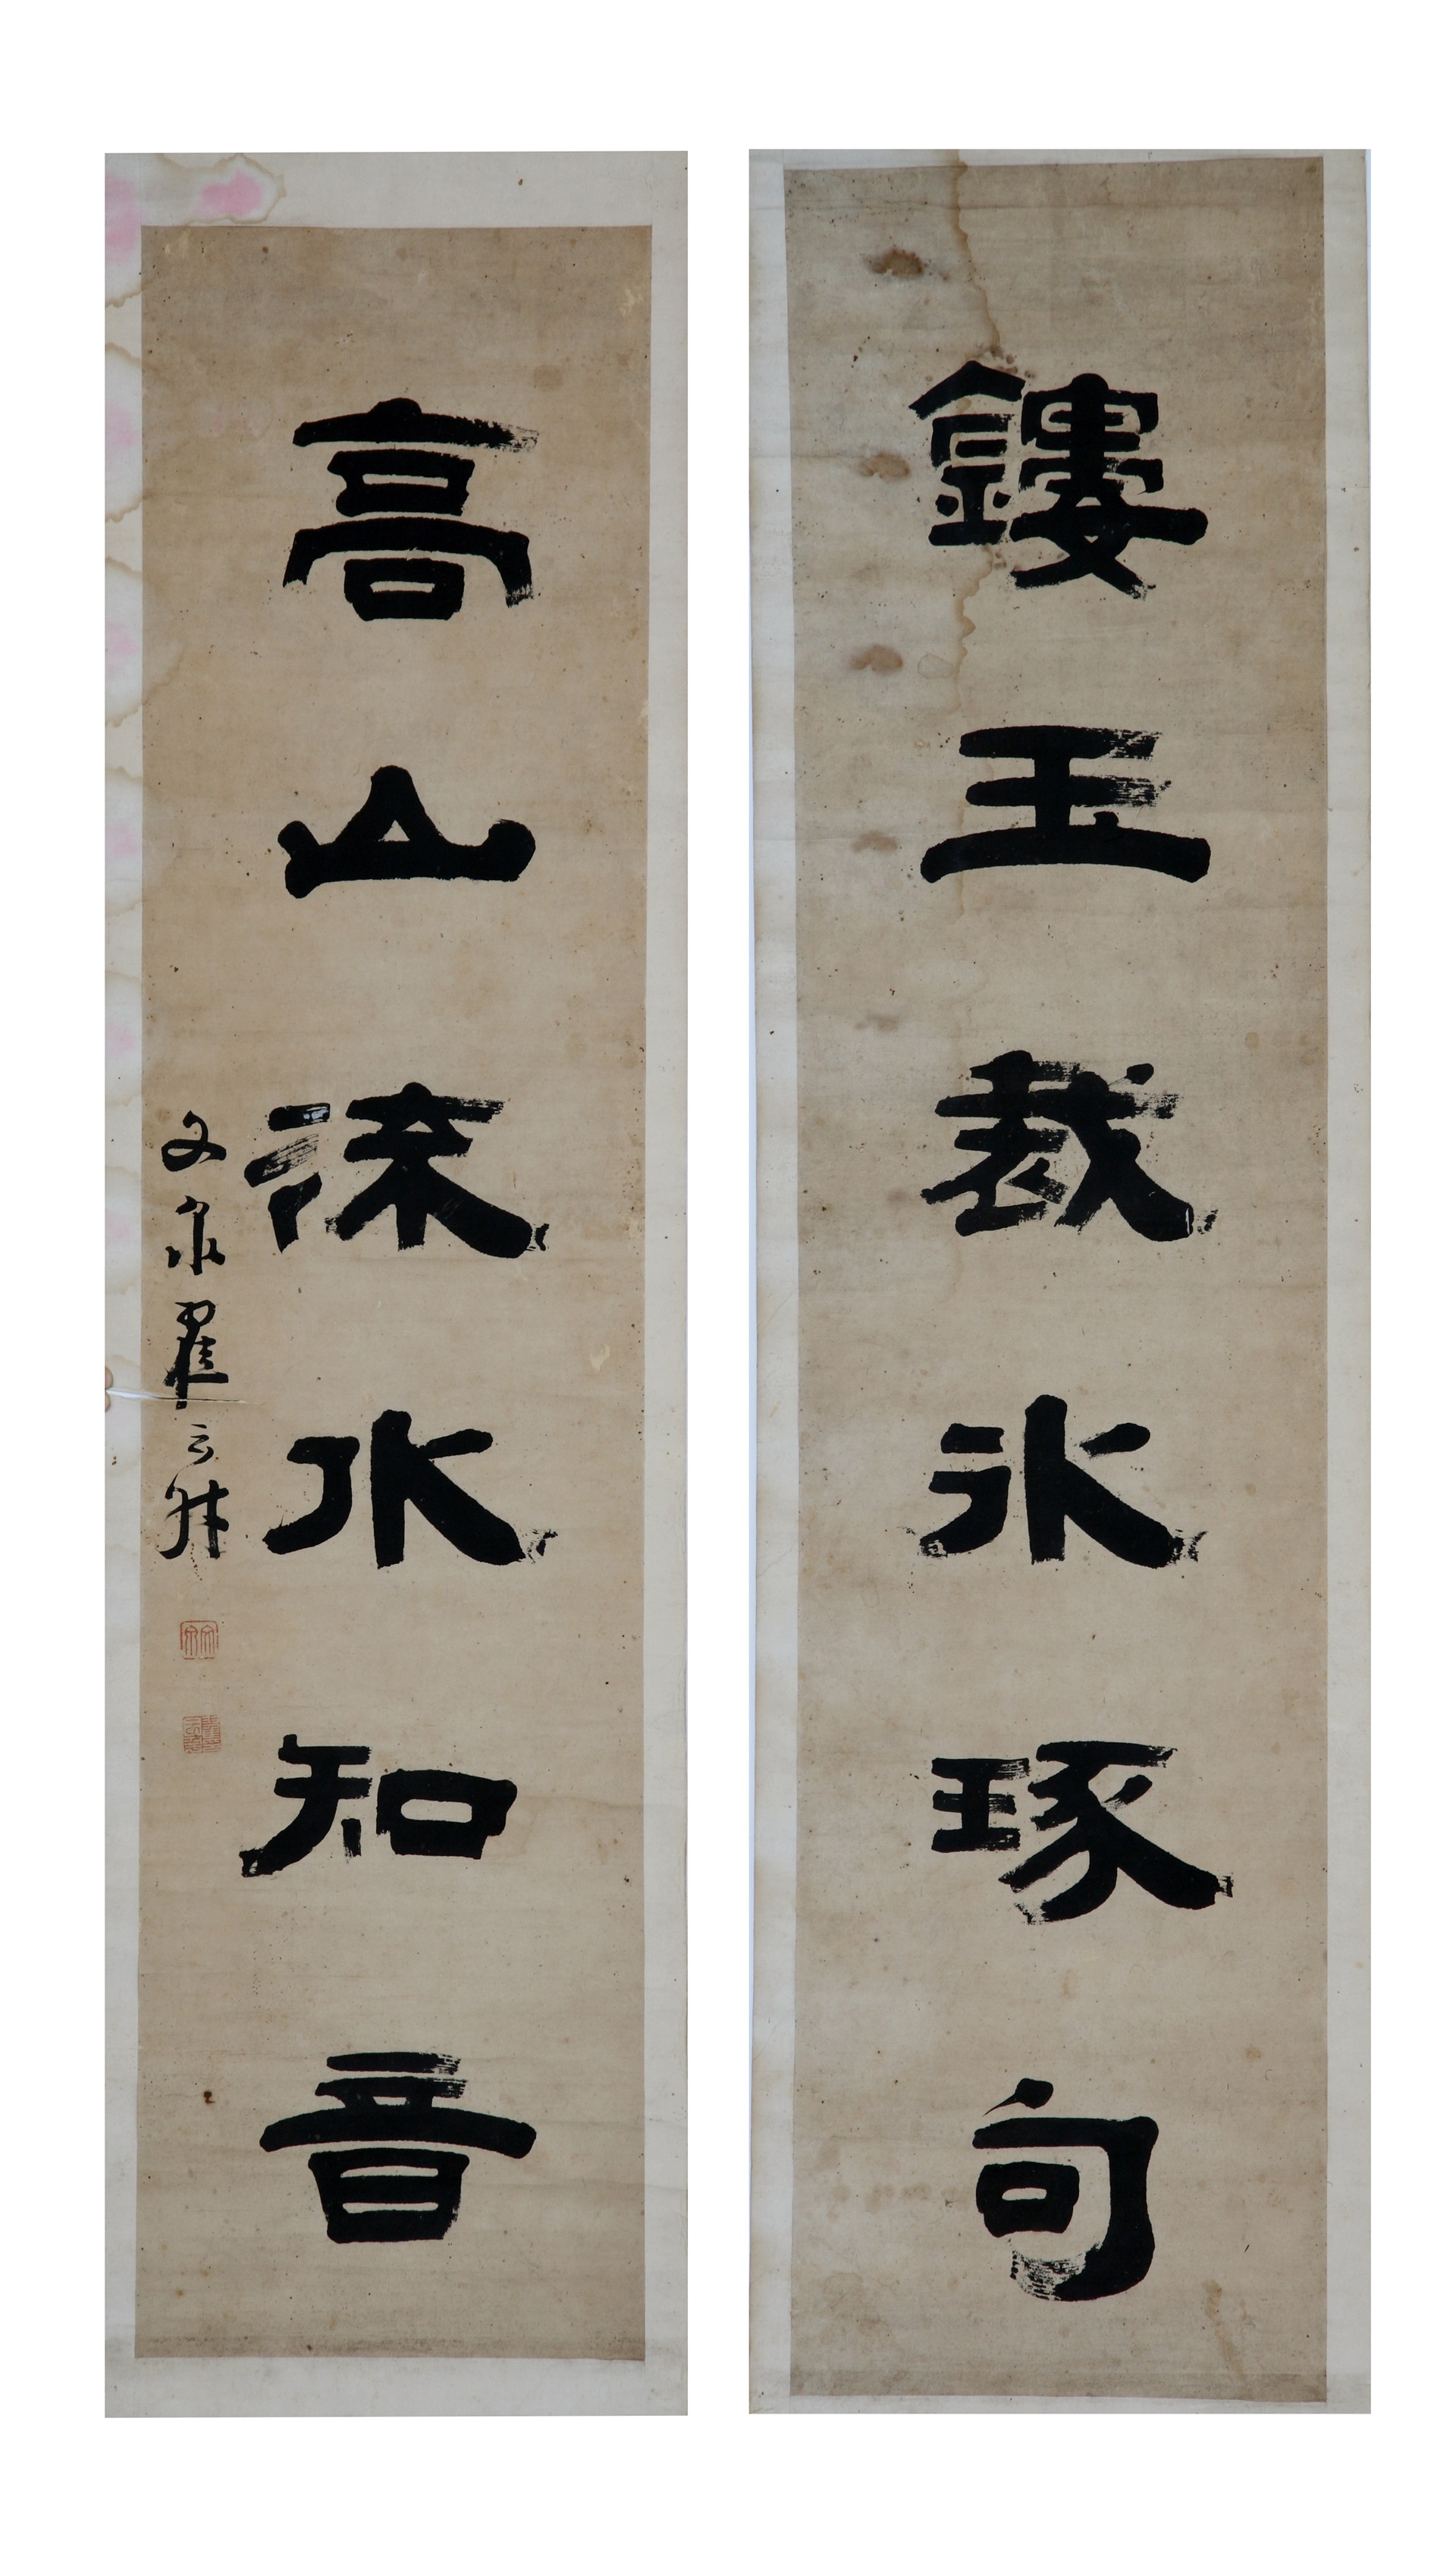 鏤玉裁冰琢句
高山流水知音
文泉翟云升